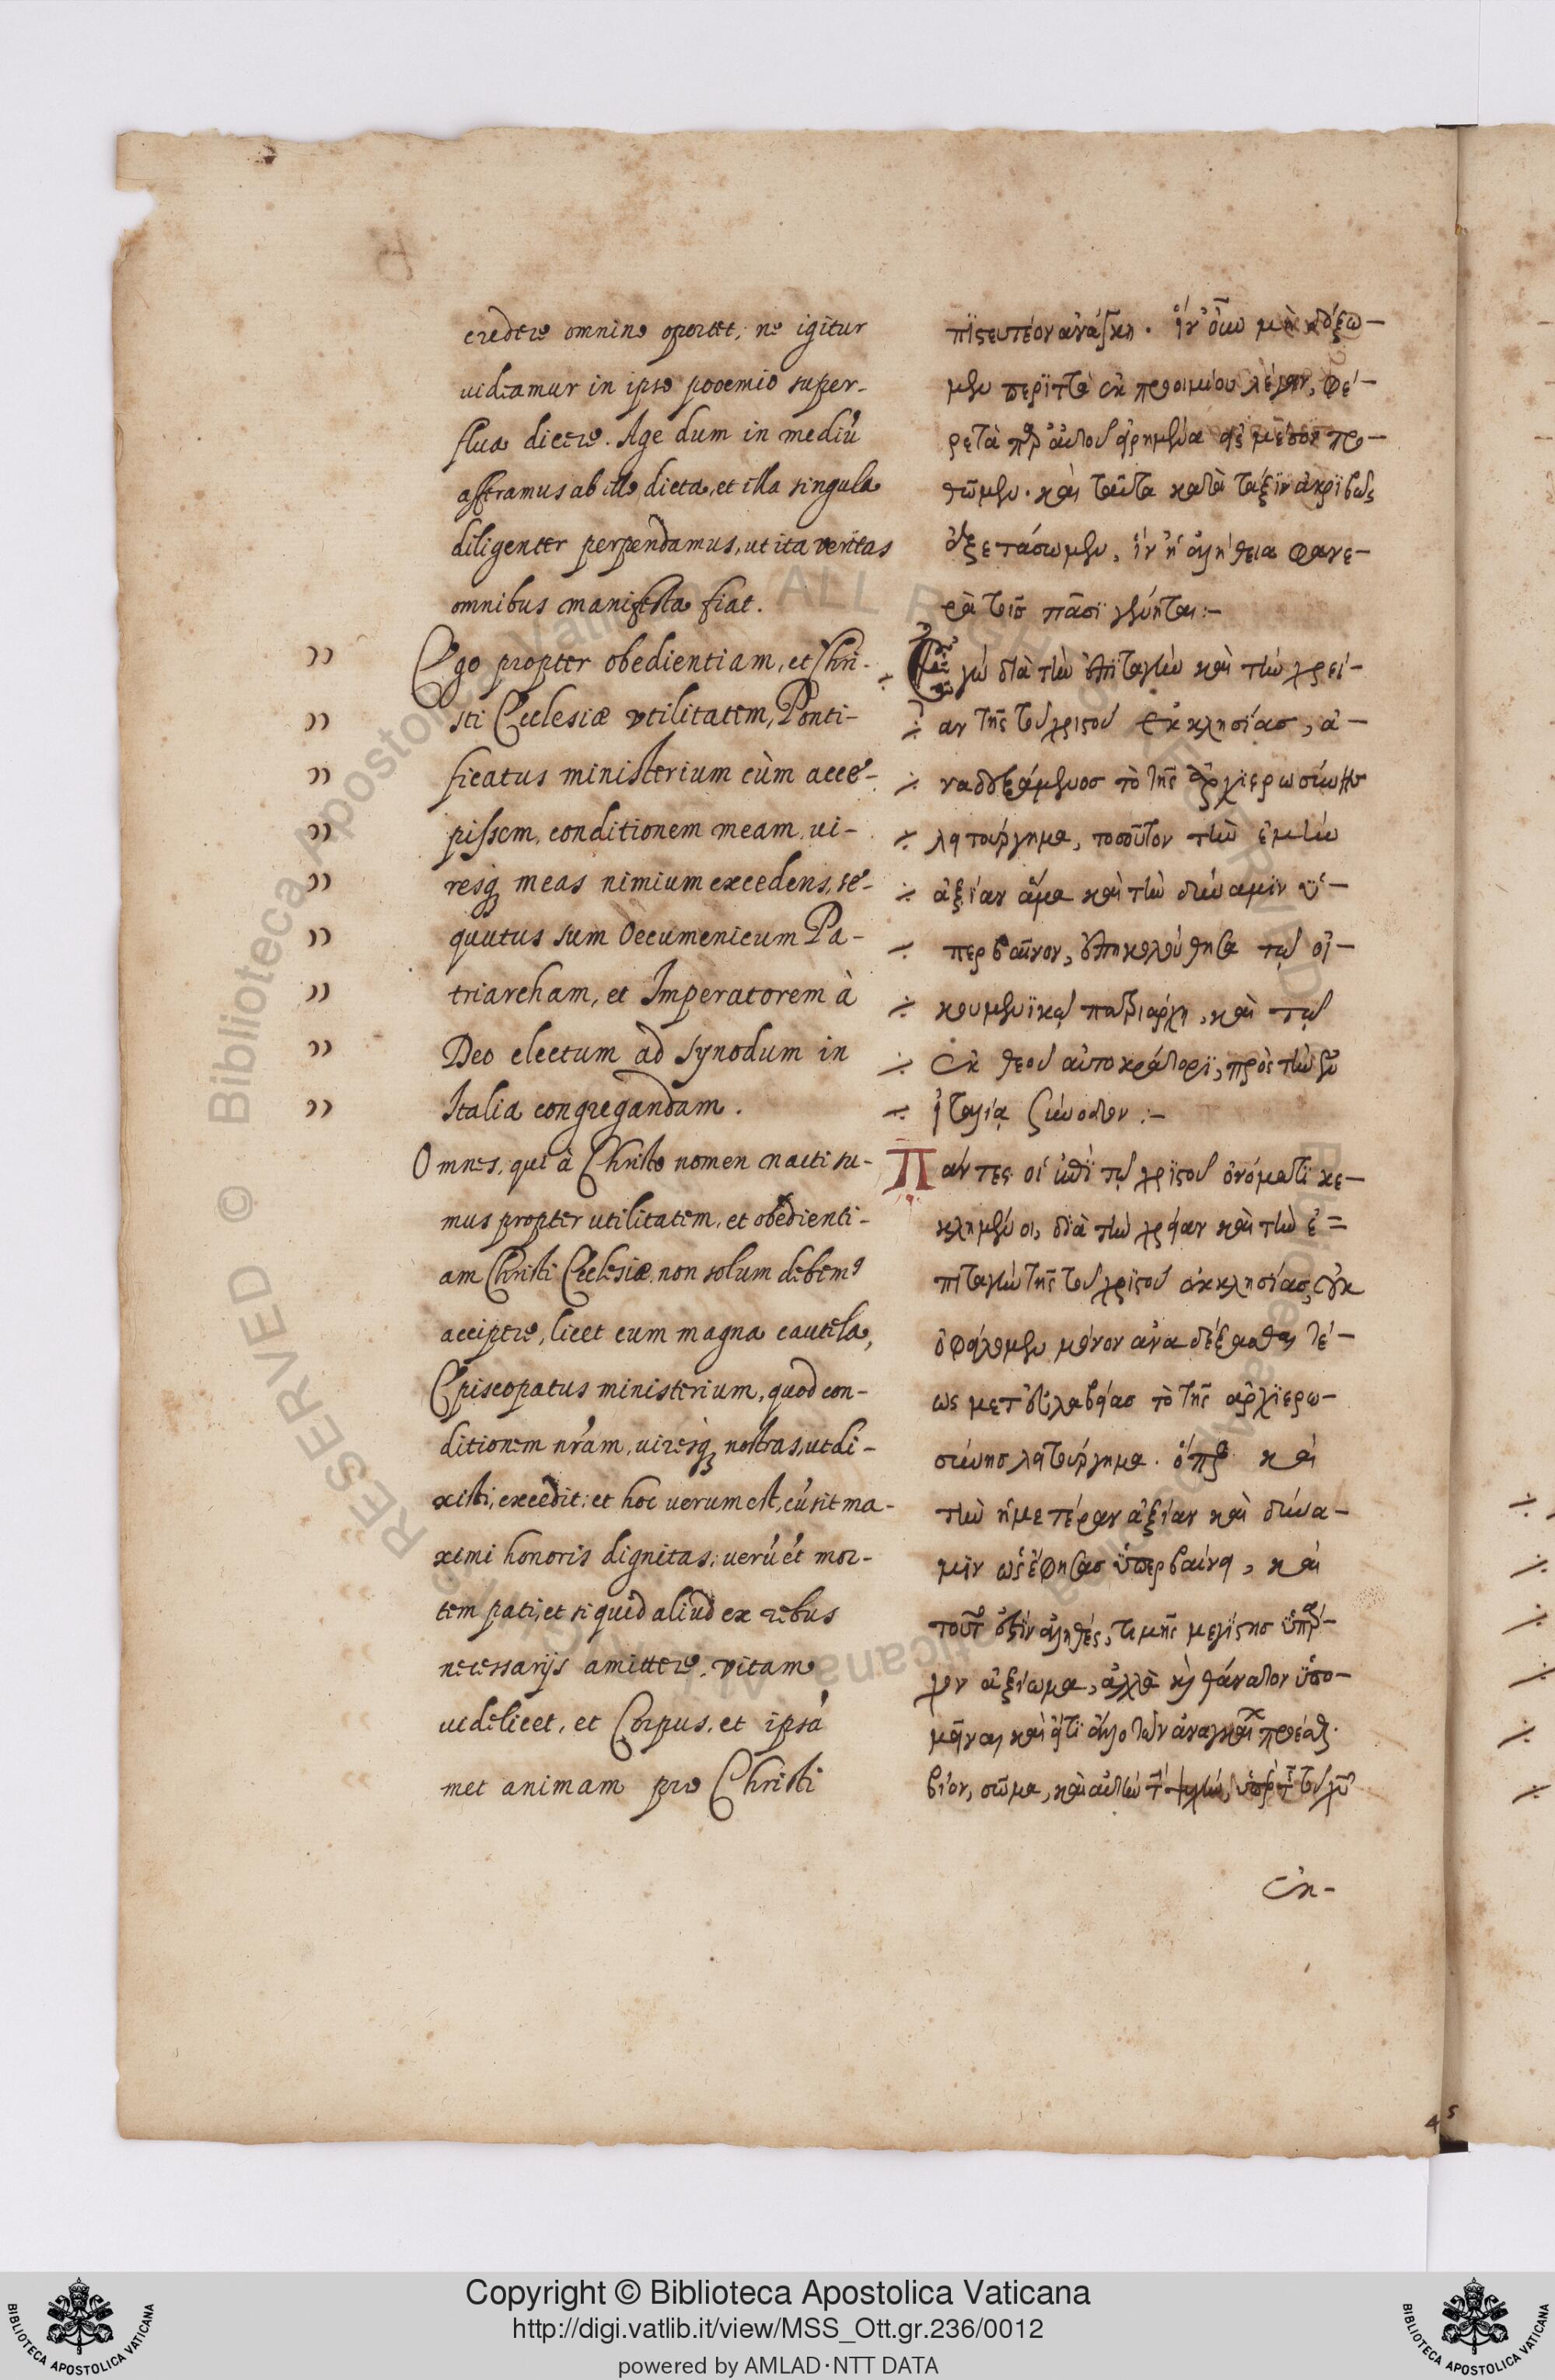 credere omnino oportet; ne igitur
uideamur in ipso prooemio super-
flua dicere. Age dum in mediũ
afferamus ab illo dicta, et illa singula
diligenter perpendamus, ut ita veritas
omnibus manifesta fiat.
Ego propter obedientiam, et Chri-
sti Ecclesiæ vtilitatem, Ponti-
ficatus ministerium cùm acce-
pissem, conditionem meam, ui-
resq; meas nimium excedens, se-
quutus sum Oecumenicum Pa-
triarcham, et Imperatorem à
Deo electum ad synodum in
Italia congregandam.
Omnes, qui à Christo nomen nacti su-
mus propter utilitatem, et obedienti-
am Christi Ecclesiæ, non solum debemꝰ
accipere, licet cum magna cautela,
Episcopatus ministerium, quod con-
ditionem nr̃am, uiresq; nostras, ut di-
xisti, excedit: et hoc uerum est, cũ sit ma-
ximi honoris dignitas; uerũ ét mor-
tem pati, et si quid aliud ex rebus
necessarijs amittere, vitam
uidelicet, et Corpus, et ipsã
met animam pro Christi
πϊστευτέον ἀνάγκη. ἵν' οὖν μὴ δόξω-
μεν περϊττὰ ἐκ προοιμίου λέγειν, φέ-
ρετὰ παρ' αὐτοῦ εἰρημένα εἰς μέσον προ-
θῶμεν. καὶ ταῦτα κατὰ τάξϊν ἀκρϊβῶς
ἐξετάσωμεν, ἵν' ἡ ἀλήθεια φανε-
ρὰ τοῖς πᾶσϊ γένηται:-
Ἐγὼ διὰ τὴν ἐπϊταγὴν καὶ τὴν χρεί-
αν τῆς τοῦ χριστοῦ ἐκκλησίας, ἀ-
ναδεξάμενος τὸ τῆς ἀρχϊερωσύνης
λειτούργημα, τοσοῦτον τὴν ἐμὴν
ἀξίαν ἅμα καὶ τὴν δύναμϊν ὑ-
περβαῖνον, ἐπηκολούθησα τῷ οἰ-
κουμενϊκῷ πατριάρχῃ, καὶ τῷ
ἐκ θεοῦ αὐτοκράτορϊ, πρὸς τὴν ἐν
ἰταλίᾳ σύνοδον:-
Πάντες οἱ ἐπὶ τῷ χρϊστοῦ ὀνόματϊ κε-
κλημένοι, διὰ τὴν χρείαν καὶ τὴν ἐ-
πιταγὴν τῆς τοῦ χρϊστοῦ ἐκκλησίας, οὐκ
ὀφείλομεν μόνον ἀναδέξασθαι τέ-
ως μετ' εὐλαβείας τὸ τῆς ἀρχϊερω-
σύνης λειτούργημα. ὅπερ καὶ
τὴν ἡμετέραν ἀξίαν καὶ δύνα-
μϊν ὡς ἔφησας ὑπερβαίνει, καὶ
τοῦτ' ἐστὶν ἀληθές, τιμῆς μεγίστης ὑπάρ-
χον ἀξίωμα, ἀλλὰ καὶ θάνατον ὑπο-
μεῖναι καὶ εἴτϊ ἄλλο τῶν ἀναγκαίων προέσθαι.
βίον, σῶμα, καὶ αὐτὴν τὴν ψυχὴν, ὑπὲρ τῆς τοῦ χυ
ἐκ-
45
Copyright © Biblioteca Apostolica Vaticana
http://digi.vatlib.it/view/MSS_Ott.gr.236/0012
powered by AMLAD·NTT DATA
BIBLIOTECA APOSTOLICA VATICANA
BIBLIOTECA APOSTOLICA VATICANA